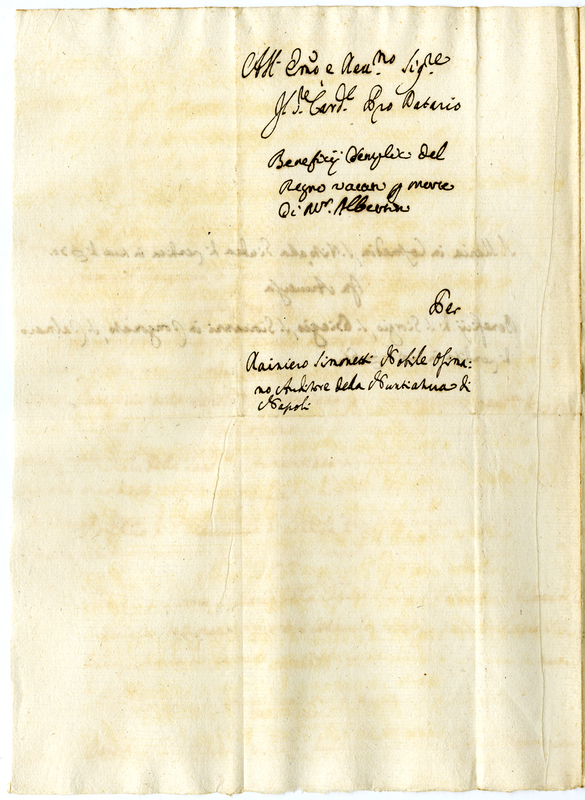 All' Em̃o e Reu.mo Sig.re
Il S.re Card.l Pro Datario
Beneficij Semplic del
Regno vacan p morte
Di Mr. Albertin
Per
Rainiero Simonetti Nobile Osima:
no Auditore della Nuntiatura di
Napoli